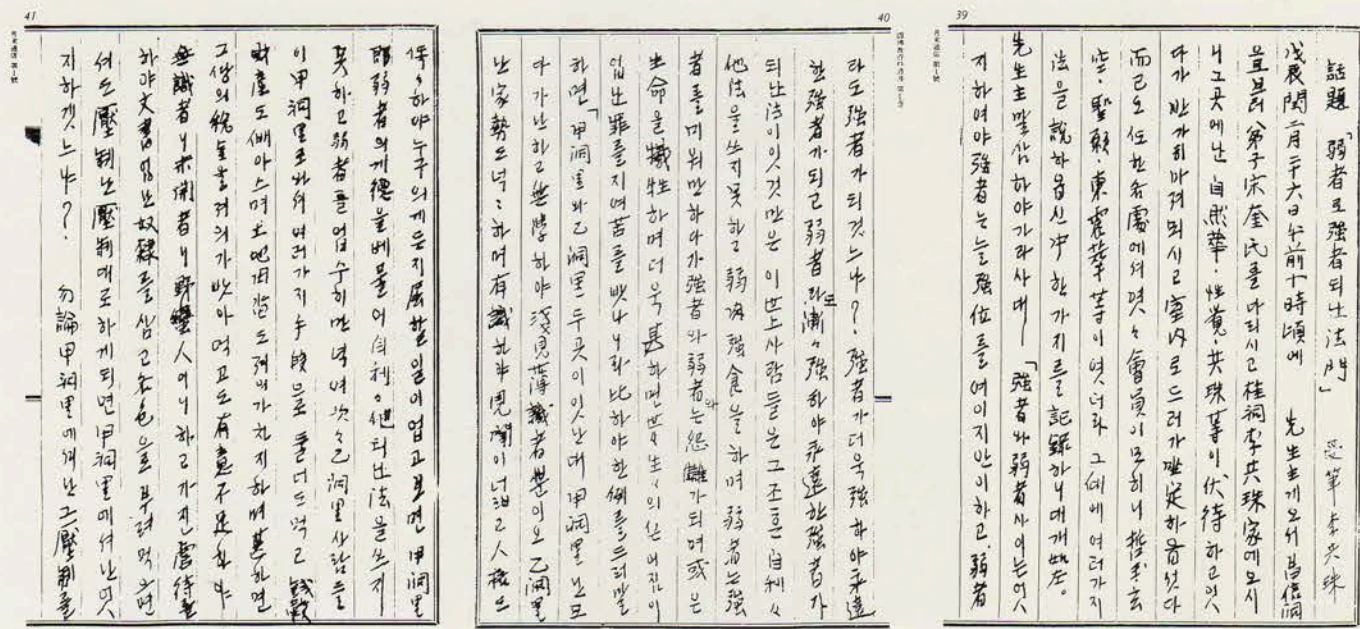 39
話題 「弱者로 强者되난 法門」 受筆 李共珠
戊辰閏二月二十六日午前十時頃에 先生主게오서 昌信洞
弟子宋奎氏를 다리시고 桂洞李共珠家에 오시
니 그곳에난 自然華・性覺・共珠等이 伏待하고 잇
다가 반가히 마저 뫼시고 室內로 드러가 坐定하읍섯다
而已오 또한 各處에서 몃々 會員이 모히니 哲玉・玄
空・聖願・東震華等이엿더라 그때에 여러가지
法을 說하옵신 中 한가지를 記錄하니 대개 如左。
先生主말삼하야 가라사대― 「强者와 弱者사이는 엇
지하여야 强者는 늘 强位를 여이지 안이하고、弱者
40
라도 强者가 되것느냐? 强者가 더욱 强하야 永遠
한 强者가 되고 弱者라도 漸々 强하야 永遠한 强者가
되난 法이 잇것만은 이 世上사람들은 그 조흔 自利々
他法을 쓰지 못하고 弱肉强食을 하며 弱者는 强
者를 미워만 하다가 强者와 弱者와는 怨讐가 되며 或은
生命을 犧牲하며 더욱 甚하면 世々生々의 신
업난 罪를 지여 苦를 밧나니라 比하야 한 例를 드러 말
하면 「甲洞里와 乙洞里 두곳이 잇난대 甲洞里난 모
다 가난하고 無學하야 淺見薄識者뿐이오 乙洞里
난 家勢도 넉々하며 有識한야 見聞이 너르고 人格도
41
하야 누구의게든지 屈할일이 업고 보면 甲洞里
弱者의게 德을 베풀어 自利々他되난 法을 쓰지
못하고 弱者를 업수히만 녁여 次々 乙洞里사람들
이 甲洞里로 와서 여러가지 手段으로 둘너도 먹고
財産도 빼아스며 土地田畓도 저의가 차지하며 甚하면
그 상의 稅金을 저의가 밧아 먹고도 有意不足하야
無識者니 未開者니 野蠻人이니 하고 가진 虐待를
하야 文書업난 奴隸를 삼고 各色으로 부려먹으면
서도 壓制난 壓制대로 하게되면 甲洞里에서난 엇
지 하겟느냐? 勿論 甲洞里에서난 그 壓制를